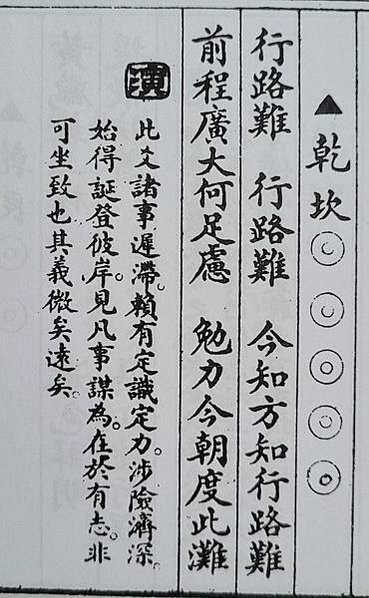 ▲乾坎◎◎◎◎◎
行路難 行路難 今知方知行路難
前程廣大何足慮 勉力今朝度此灘
演 此爻諸事遲滯。賴有定識定力。涉險濟深。
始得誕登彼岸。見凡事謀為。在於有志。非
可坐致也其義微矣遠矣。